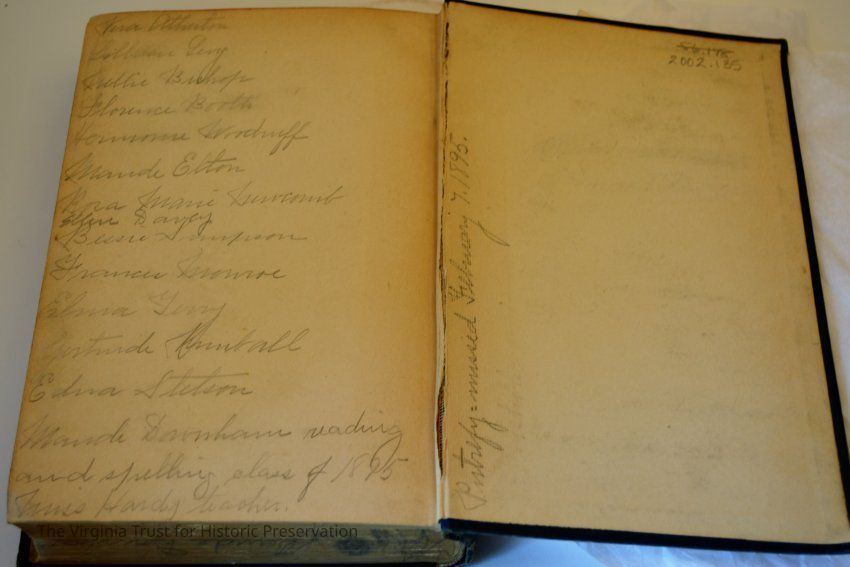 Atherton
Lillian Terry
Nellie Bishop
Florence Booth
Hermione Woodruff
Maude Elton
Rosa Marie Newcomb
Ellen Davey
Bessie Simpson
Frances Monroe
Elma Terry
Gertrude Kimball
Edna Stetson
Maude Downham reading
and spelling class of 1895
Miss Hardy teacher.
Putrify = missed February 7, 1895.
2002.135
The Virginia Trust for Historic Preservation